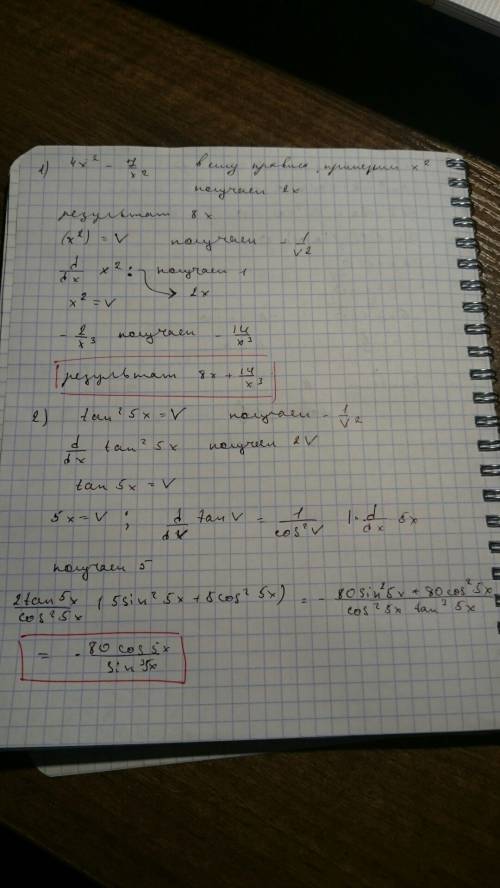 1) 4x² - 7/x² в силу правила, примерим x²
получаем 2x
результат 8x
(x²) = V получаем - 1/V²
d/dx x² : получаем 1
x² = V 2x
- 2/x³ получаем - 14/x³
результат 8x + 14/x³
2) tan² 5x = V получаем - 1/V²
d/dx tan² 5x получаем 2V
tan 5x = V
5x = V ; d/dV tan V = 1/cos² V 1 · d/dx 5x
получаем 5
2tan5x/cos²5x (5sin² 5x + 5cos² 5x) = - 80sin²5x + 80cos²5x/cos²5x tan³ 5x
= - 80 cos 5x/sin³5x